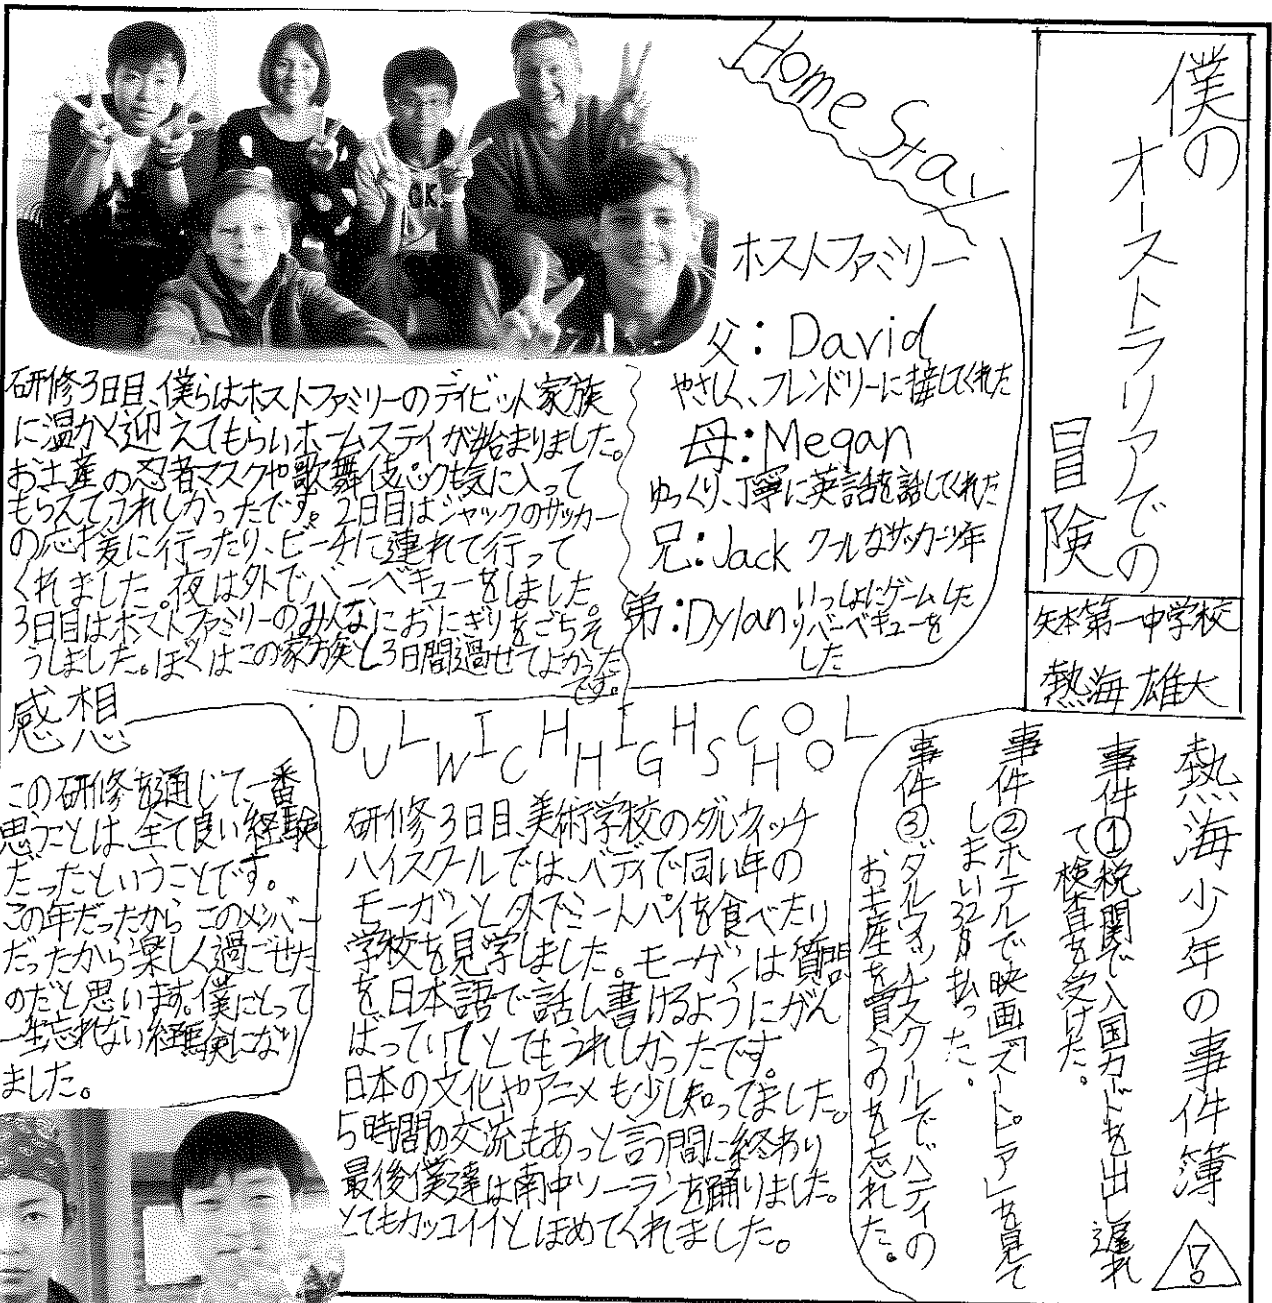 僕の
オーストラリアでの
冒険
矢本第一中学校
熱海 雄大
Home Stay
ホストファミリー
父:David
やさしく、フレンドリーに接してくれた
母:Megan
ゆっくり、丁寧に英語を話してくれた
兄:Jack クールなサッカー少年
弟:Dylan いっしょにゲームした
りバーベキューを
した
研修3日目、僕らはホストファミリーのデイビット家族
に温かく迎えてもらいホームステイが始まりました。
お土産の忍者マスクや歌舞伎パックも気に入って
もらえてうれしかったです。2日目はジャックのサッカー
の応援に行ったり、ビーチに連れて行って
くれました。夜は外でバーベキューをしました。
3日目はホストファミリーのみんなにおにぎりをごちそ
うしました。ぼくはこの家族と3日間過せてよかった
です。
熱海少年の事件簿
事件①税関で入国カードを出し遅れ
て検査を受けた。
事件②ホテルで映画「ズートピア」を見て
しまい32$払った。
事件③ダルウィッチスクールでバディの
お土産を買うのを忘れた。
DULWICH HIGH SCHOOL
研修3日目、美術学校のダルウィッチ
ハイスクールでは、バディで同い年の
モーガンと外でミートパイを食べたり
学校を見学しました。モーガンは質問
を日本語で話し書けるようにがん
ばっていてとてもうれしかったです。
日本の文化やアニメも少し知ってました。
5時間の交流もあっと言う間に終わり
最後僕達は南中ソーランを踊りました。
とてもカッコイイとほめてくれました。
感想
この研修を通じて一番
思うことは、全て良い経験
だったということです。
この年だったから このメンバー
だったから楽しく過ごせた
のだと思います。僕にとって
一生忘れない経験になり
ました。